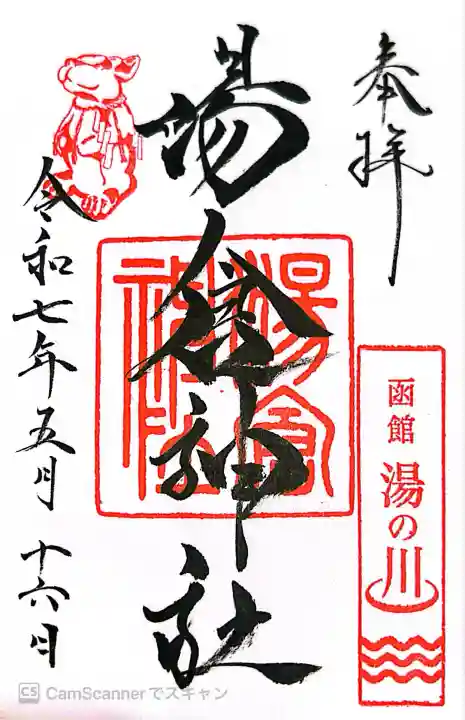 奉拝
湯倉神社
湯倉
神社
函館 湯の川
令和七年五月十六日
CS CamScannerでスキャン